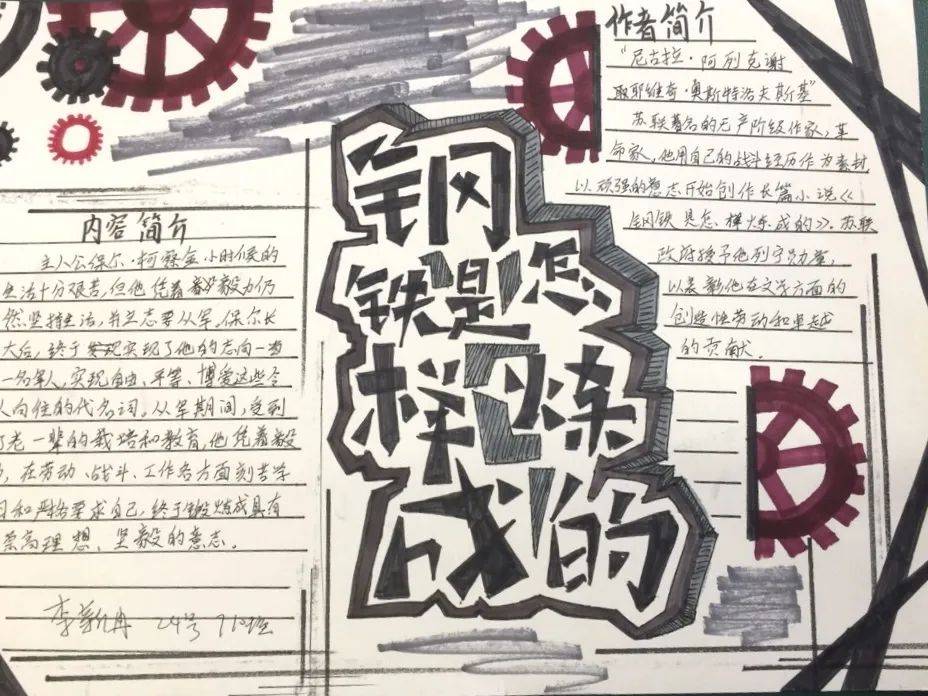 钢
铁是怎
样炼
成的
作者简介
"尼古拉·阿列克谢
耶维奇·奥斯特洛夫斯基"
苏联著名的无产阶级作家,革
命家,他用自己的战斗经历作为素材
以顽强的意志开始创作长篇小说《
钢铁是怎样炼成的》.苏联
政府授予他列宁勋章,
以表彰他在文学方面的
创造性劳动和卓越
的贡献.
内容简介
主人公保尔·柯察金小时候的
生活十分艰苦,但他凭着毅力仍
然坚持生活,并立志要从军,保尔长
大后,终于实现了他的志向一当
一名军人,实现自由、平等、博爱这些令
人向往的代名词。从军期间,受到
了老一辈的栽培和教育,他凭着毅
力,在劳动、战斗、工作各方面刻苦学
习和严格要求自己,终于锻炼成具有
崇高理想、坚毅的意志。
李 24号 710班